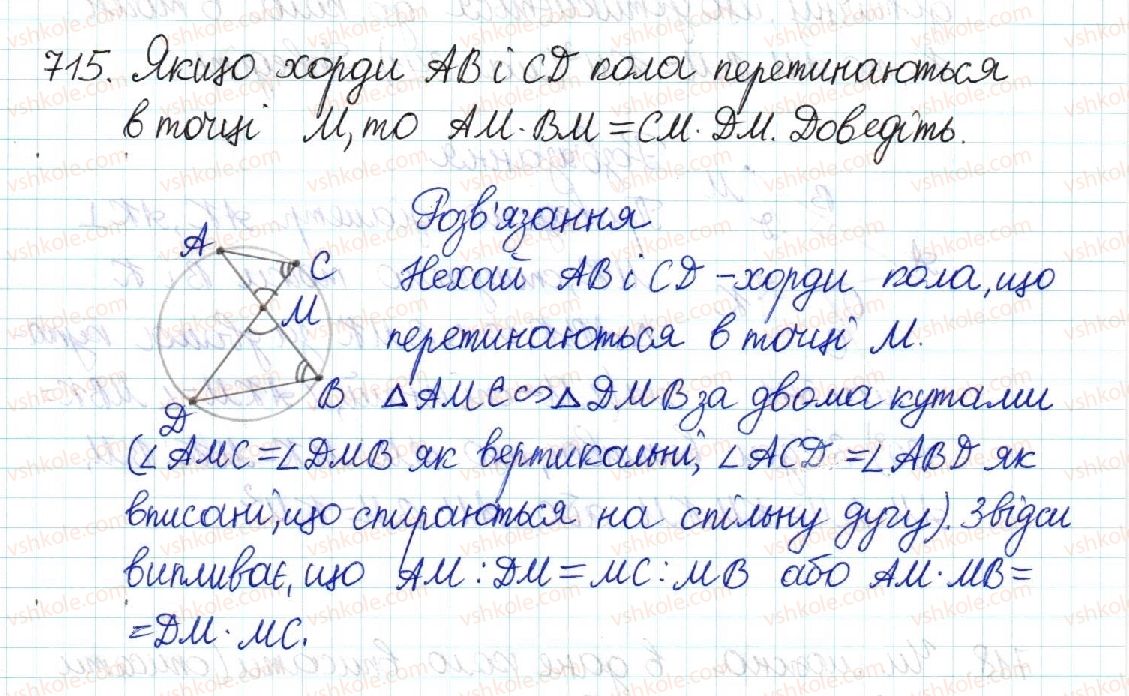 715. Якщо хорди AB і CD кола перетинаються
в точці M, то AM · BM = CM · DM. Доведіть.
Розв'язання
A
C
M
B
D
Нехай AB і CD - хорди кола, що
перетинаються в точці M.
△AMC ∽ △DMB за двома кутами
(∠AMC = ∠DMB як вертикальні, ∠ACD = ∠ABD як
вписані, що спираються на спільну дугу). Звідси
випливає, що AM : DM = MC : MB або AM · MB =
= DM · MC.